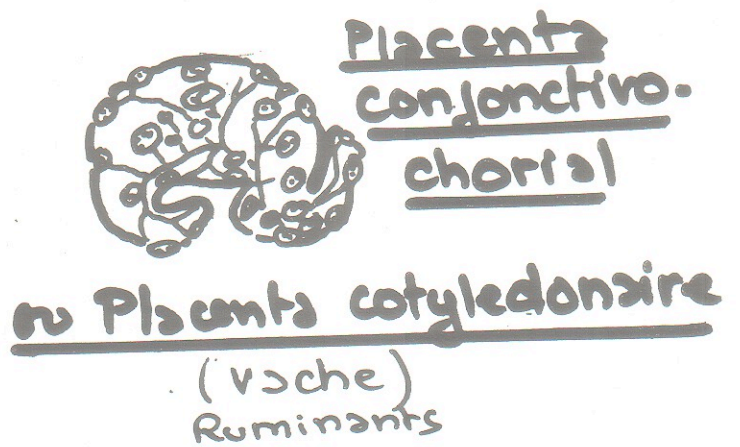 Placenta
conjonctivo-
chorial
ou Placenta cotyledonaire
(vache)
Ruminants